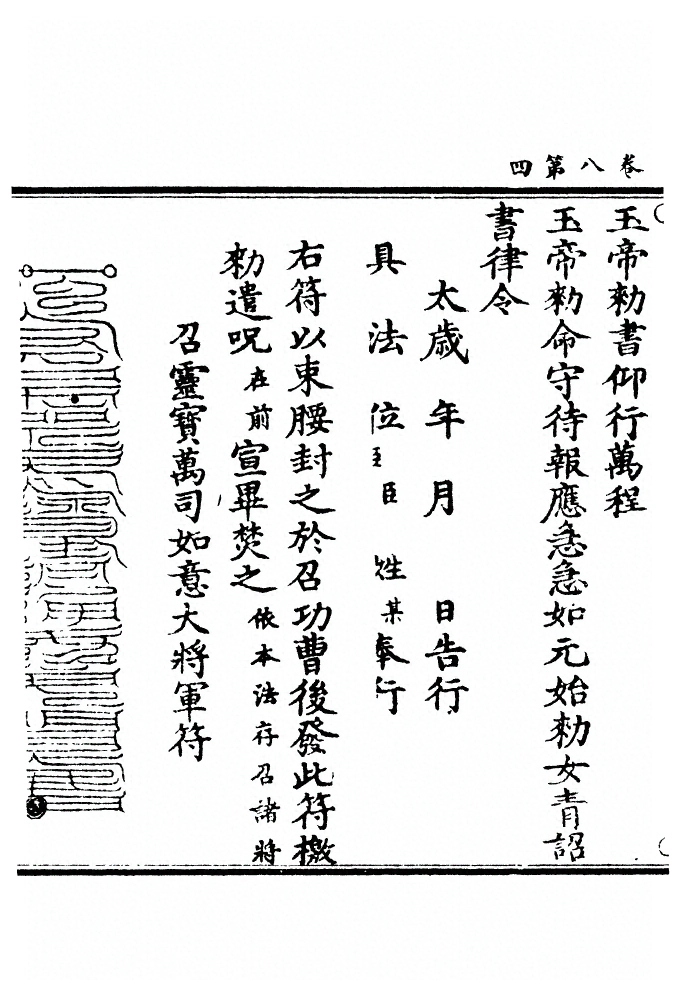 卷八第四
玉帝勑書仰行萬程
玉帝勑命守待報應急急如元始勑女青詔
書律令
太歲年月日告行
具法位王臣姓某奉行
右符以束腰封之於召功曹後發此符檄
勑遣呪在前宣畢焚之依本法存召諸將
召靈寶萬司如意大將軍符